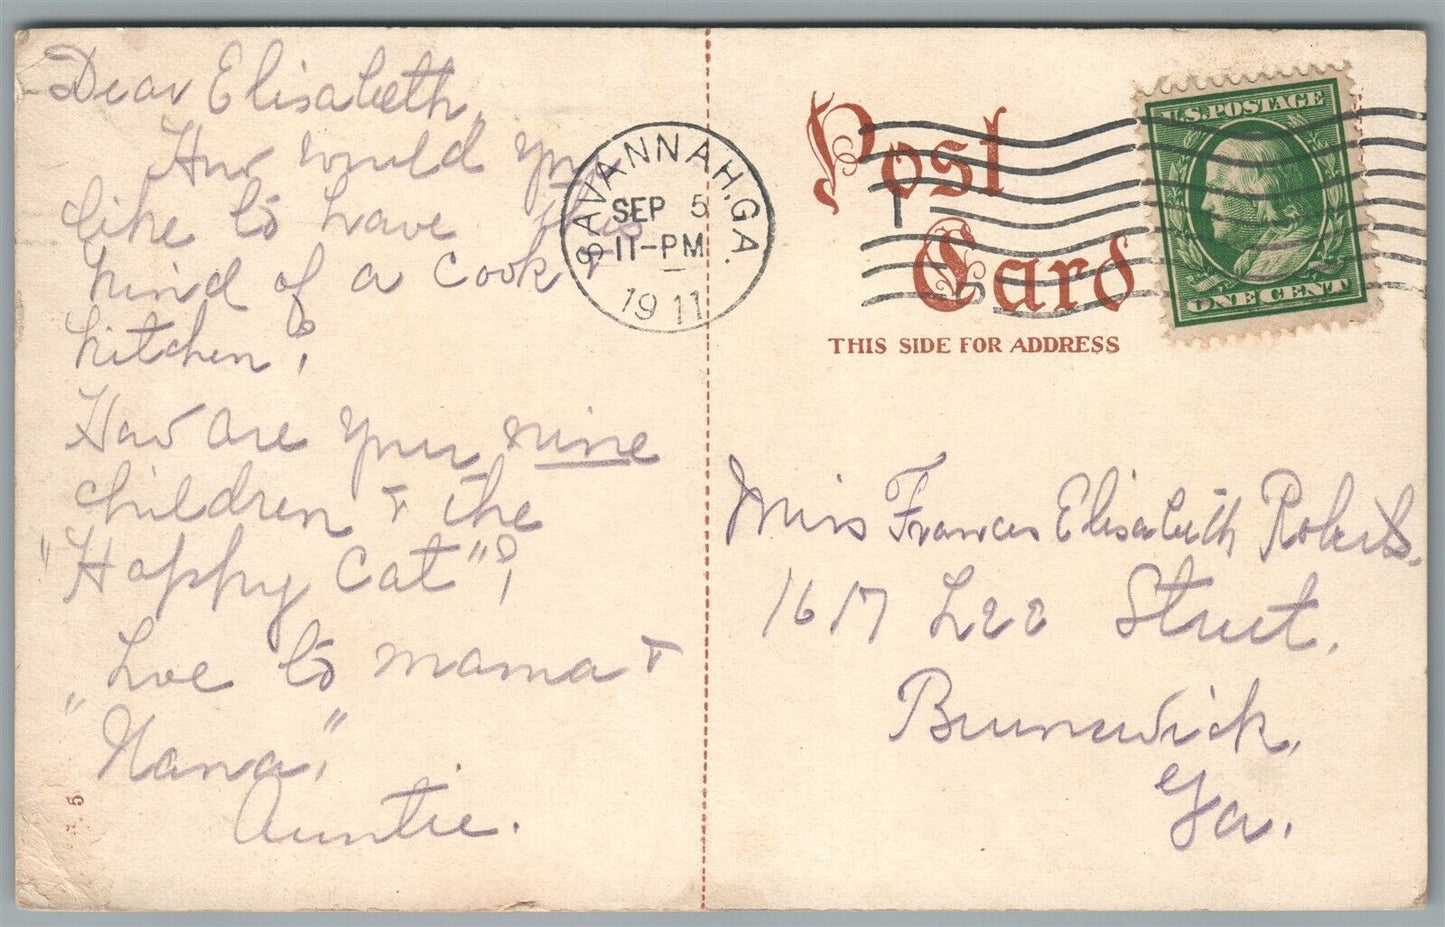 Dear Elisabeth,
How would you
like to have this
kind of a cook
kitchen?
How are your nine
children + the
"Happy Cat"?
Love to mama +
"Nana."
Auntie.
5
SAVANNAH, GA.
SEP 5
11-PM
1911
Post
Card
THIS SIDE FOR ADDRESS
U.S. POSTAGE
ONE CENT
Miss Frances Elisabeth Roberts.
1617 Lee Street.
Brunswick,
Ga.